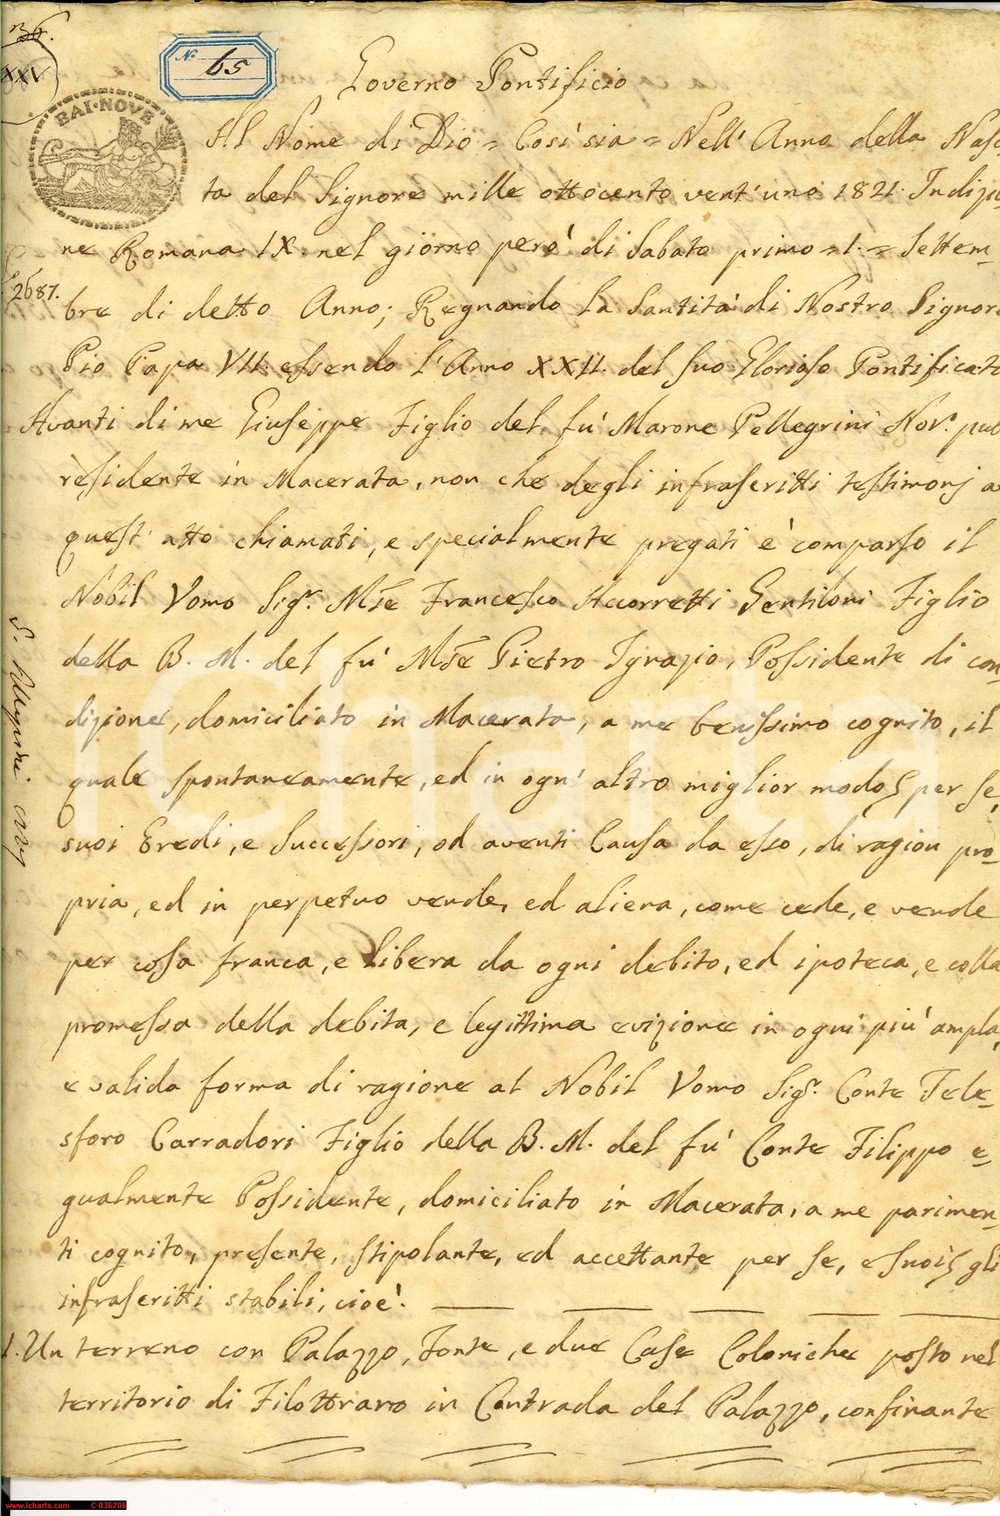 36.
XXV
N. 65
BAI·NOVE
2687.
Governo Pontificio
Al Nome di Dio = Cosi sia = Nell' Anno della Nasc
ta del Signore mille ottocento vent'uno 1821. Indizio
ne Romana IX. nel giorno però di Sabato primo = 1. = Settem=
bre di detto Anno; Regnando La Santità di Nostro Signore
Pio Papa VII. essendo l'Anno XXII. del suo Glorioso Pontificato
Avanti di me Giuseppe Figlio del fu' Marone Pellegrini Not.º pub
residente in Macerata, non che degli infrascritti testimonj a
quest' atto chiamati, e specialmente pregati è comparso il
Nobil Uomo Sigr. Mse Francesco Accorretti Gentiloni Figlio
della B. M. del fu' Mse Pietro Ignazio, Possidente di con=
dizione, domiciliato in Macerata, a me benissimo cognito, il
quale spontaneamente, ed in ogn' altro miglior modo per se,
suoi Eredi, e Successori, od aventi Causa da esso, di ragion pro=
pria, ed in perpetuo vende, ed aliena, come cede, e vende
per cosa franca, e libera da ogni debito, ed ipoteca, e colla
promessa della debita, e legittima evizione in ogni più ampla,
e valida forma di ragione al Nobil Uomo Sigr. Conte Tele=
sforo Carradori Figlio della B. M. del fu' Conte Filippo e=
gualmente Possidente, domiciliato in Macerata, a me parimen=
ti cognito, presente, stipolante, ed accettante per se, e suoi gli
infrascritti stabili, cioè.
1. Un terreno con Palazzo, Fonte, e due Case Coloniche posto nel
territorio di Filottrano in Contrada del Palazzo, confinante
www.icharta.com C-036206